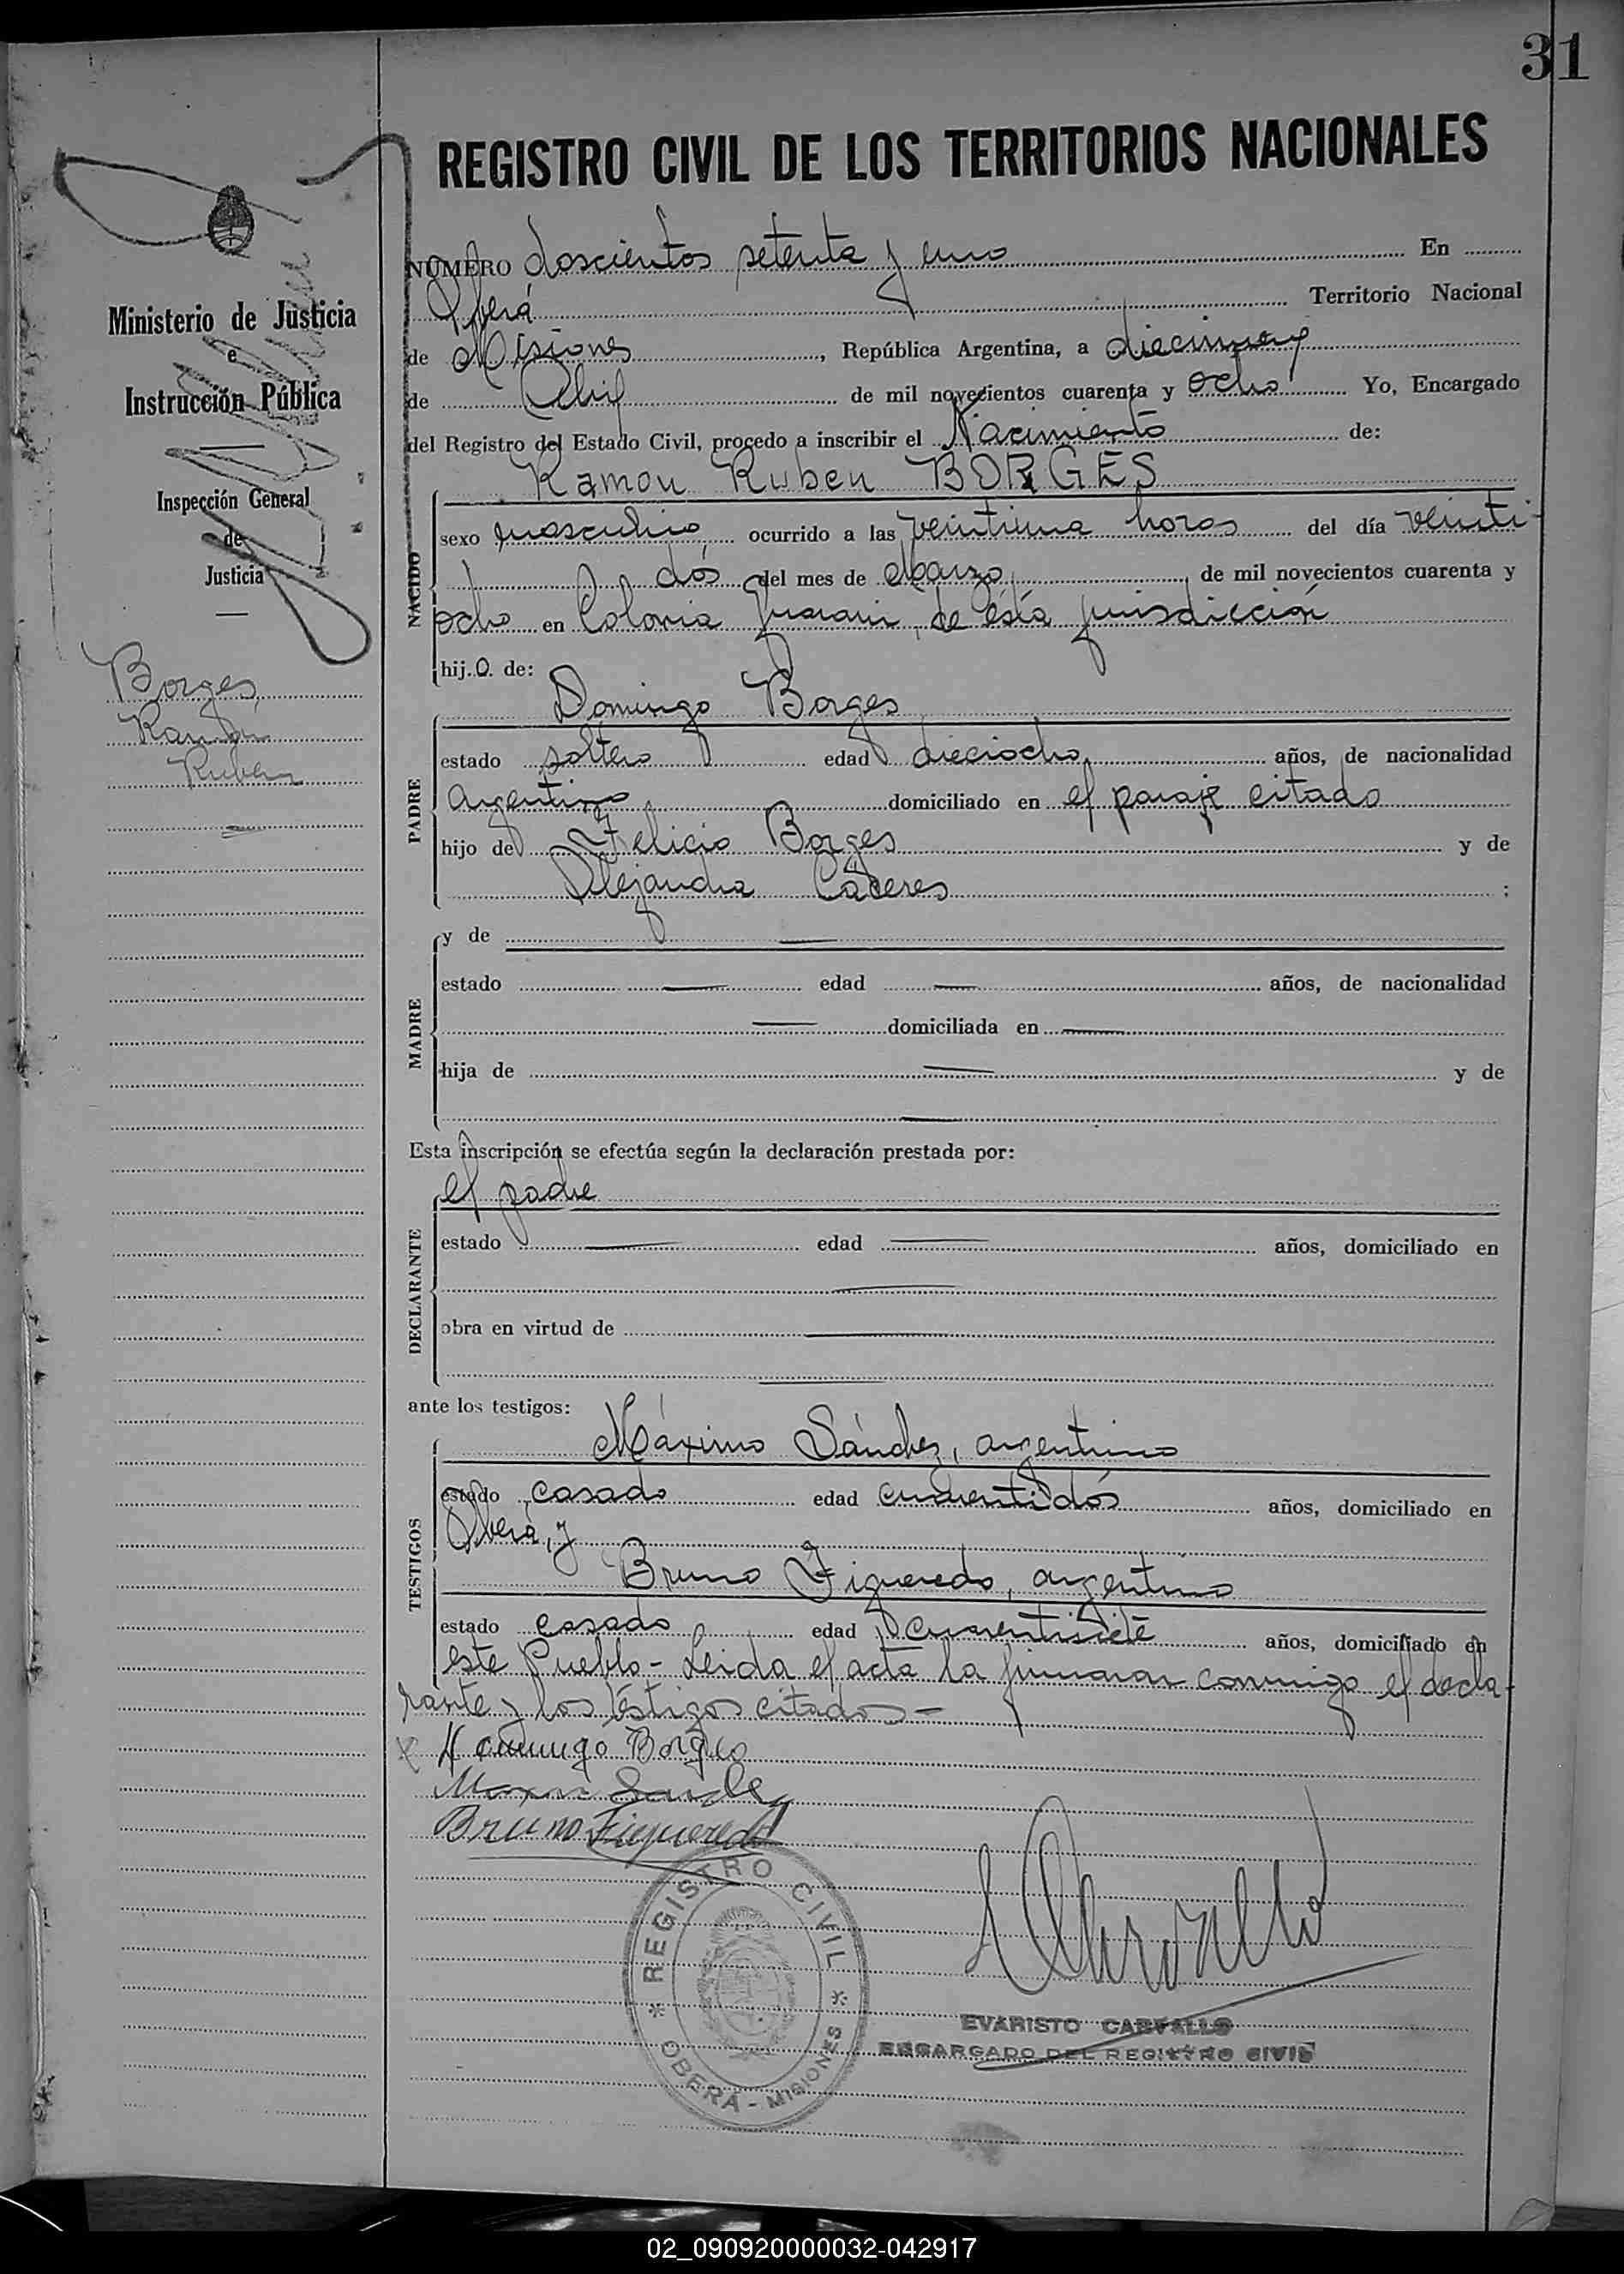 31
REGISTRO CIVIL DE LOS TERRITORIOS NACIONALES
NÚMERO doscientos setenta y uno En
Oberá Territorio Nacional
de Misiones, República Argentina, a diecinueve
de Abril de mil novecientos cuarenta y ocho Yo, Encargado
del Registro del Estado Civil, procedo a inscribir el Nacimiento de:
Ramon Ruben BORGES
NACIDO
sexo masculino ocurrido a las veintiuna horas del día veinti-
dós del mes de Marzo, de mil novecientos cuarenta y
ocho en Colonia Guarani, de ésta jurisdicción
hijo de:
Domingo Borges
PADRE
estado soltero edad dieciocho años, de nacionalidad
Argentino domiciliado en el paraje citado
hijo de Felicio Borges y de
Alejandra Cáceres ;
MADRE
y de —
estado — edad — años, de nacionalidad
— domiciliada en —
hija de — y de
—
Esta inscripción se efectúa según la declaración prestada por:
el padre
DECLARANTE
estado — edad — años, domiciliado en
—
obra en virtud de —
—
ante los testigos:
Máximo Sánchez, argentino
TESTIGOS
estado casado edad cuarentidós años, domiciliado en
Oberá, y
Bruno Figueredo, argentino
estado casado edad cuarentisiete años, domiciliado en
este Pueblo - Leida el acta la firmaron conmigo el decla-
rante y los testigos citados -
Domingo Borges
Maximo Sanchez
Bruno Figueredo
REGISTRO CIVIL
OBERÁ - MISIONES
EVARISTO CARVALLO
ENCARGADO DEL REGISTRO CIVIL
Ministerio de Justicia
e
Instrucción Pública
Inspección General
de
Justicia
Borges
Ramón
Ruben
02_090920000032-042917